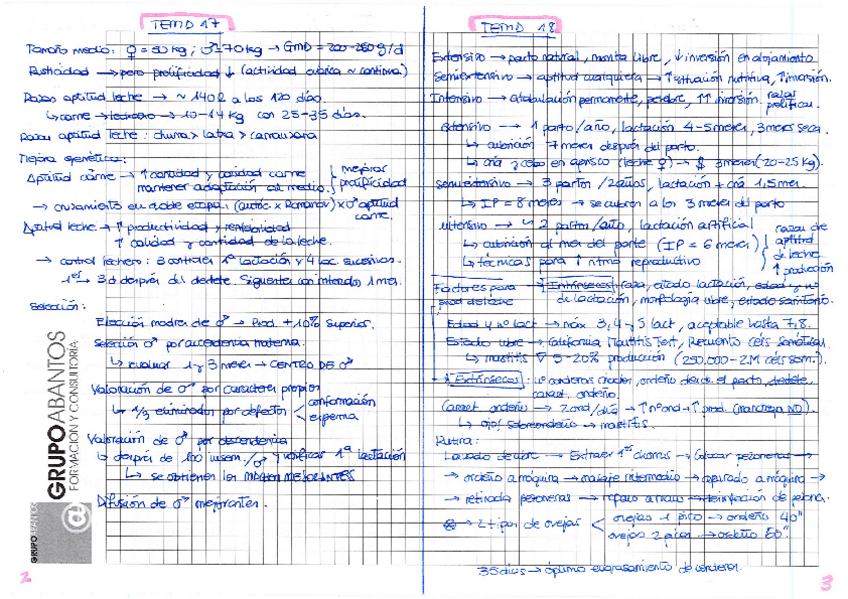 TEMA 17
Tamaño medio: ♀ = 50 kg; ♂ = 70 kg → GMD = 200-250 g/d
Rusticidad → pero prolificidad ↓ (actividad ovárica ~ continua.)
Razas aptitud leche → ~ 140 l a los 120 días.
↳ carne → lechazo → 10-14 kg con 25-35 días.
Razas aptitud leche: churra > latxa > carranzana
Mejora genética:
Aptitud carne → ↑ cantidad y calidad carne
mantener adaptación al medio. } mejorar prolificidad
→ cruzamiento en doble etapa: (autóc x Romanov) x ♂ aptitud carne.
Aptitud leche → ↑ productividad y rentabilidad
↑ calidad y cantidad de la leche.
→ control lechero: 3 controles 1ª lactación y 4 lac. sucesivas.
1er → 3 d después del destete. Siguientes con intervalo 1 mes.
Selección:
Elección madres de ♂ → Prod. +10% superior.
Selección ♂ por ascendencia materna.
↳ evaluar 1 y 3 meses → CENTRO DE ♂
Valoración de ♂ por caracteres propios
↳ 1/3 eliminados por defectos < conformación
esperma
Valoración de ♂ por descendencia
↳ después de 100 insem./♂ y verificar 1ª lactación
↳ se obtienen los MACHOS MEJORANTES
Difusión de ♂ mejorantes.
GRUPO ABANTOS
FORMACIÓN Y CONSULTORÍA
GRUPO ABANTOS
2
TEMA 18
Extensivo → parto natural, monta libre, ↓ inversión en alojamiento
Semiextensivo → aptitud cualquiera → ↑ situación nutritiva, ↑ inversión.
Intensivo → estabulación permanente, pesebre, ↑↑ inversión. razas prolíficas.
extensivo → 1 parto/año, lactación 4-5 meses, 3 meses seca.
↳ cubrición 7 meses después del parto.
↳ cría y cebo en aprisco (leche ♀) → $ 3 meses (20-25 kg).
semiextensivo → 3 partos/2 años, lactación + cría 1,5 mes.
↳ IP = 8 meses → se cubren a los 3 meses del parto
intensivo → ~ 2 partos/año, lactación artificial
↳ cubrición al mes del parto (IP = 6 meses)
↳ técnicas para ↑ ritmo reproductivo } razas de aptitud de leche ↑ producción
Factores para prod de leche → Intrínsecos: raza, estado lactación, edad y nº
de lactación, morfología ubre, estado sanitario.
Edad y nº lact → máx 3, 4 - 5 lact, aceptable hasta 7, 8.
Estado ubre → California Mastitis Test, Recuento céls somáticas.
↳ mastitis ∇ 5-20% producción (250.000-2M céls som.).
→ Extrínsecos: nº corderos criados, ordeño desde el parto, destete,
caract. ordeño.
Caract. ordeño → 2 ord/día → ↑ nº ord → ↑ prod. (manchega NO).
↳ ojo! sobreordeño → mastitis.
Rutina:
Lavado de ubre → Extraer 1os chorros → colocar pezoneras →
→ ordeño a máquina → masaje intermedio → apurado a máquina →
→ retirada pezoneras → repaso a mano → desinfección de pezones.
2 tipos de ovejas < ovejas 1 pico → ordeño 40"
ovejas 2 picos → ordeño 60".
35 días → óptimo engrasamiento de corderos.
3